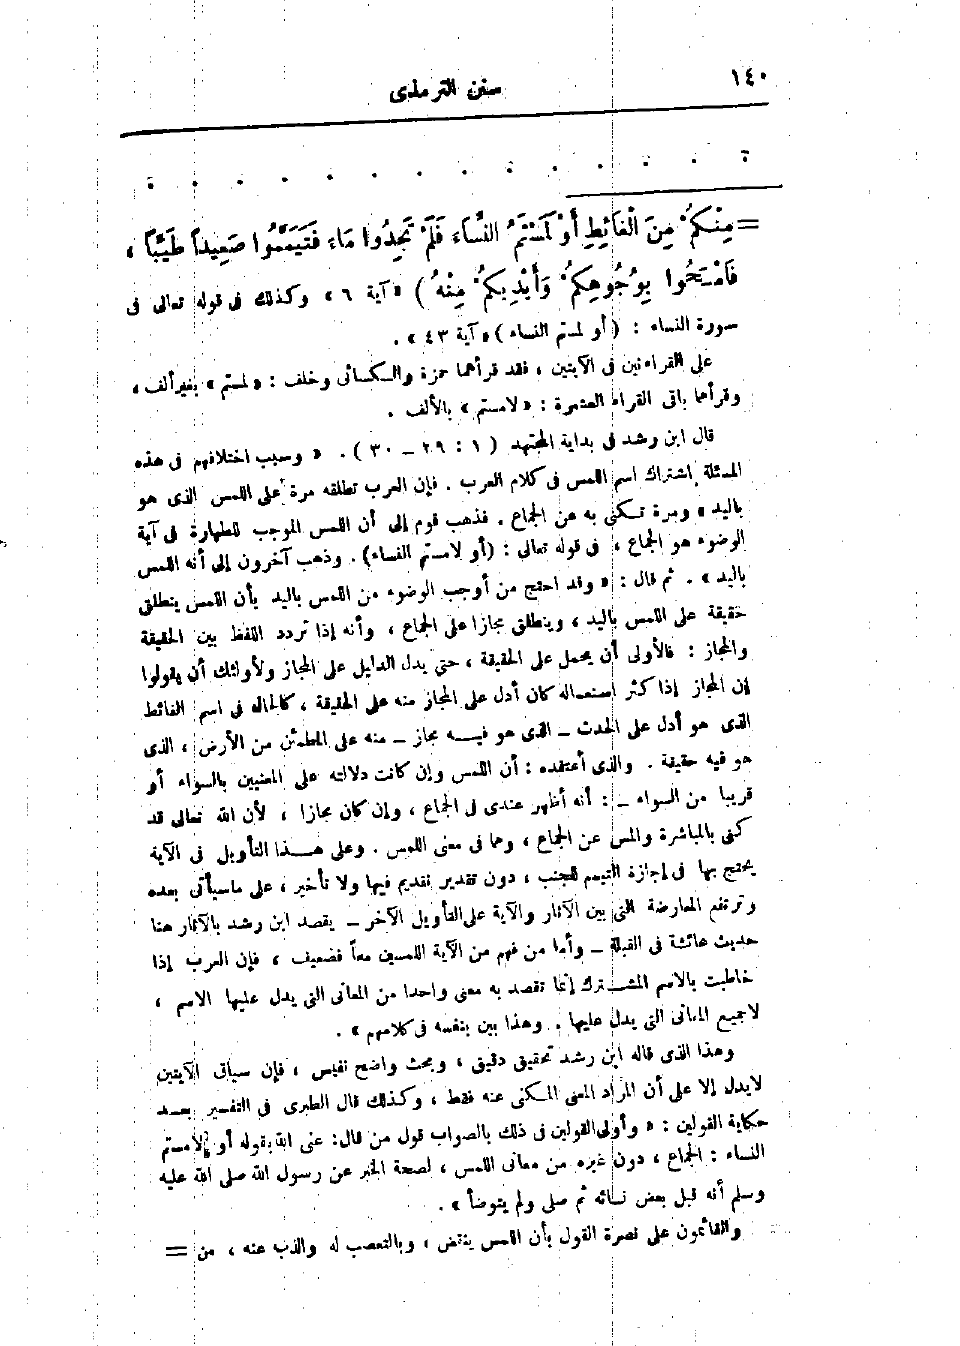 ١٤٠
سنن الترمذى
= مِنْكُمْ مِنَ الْغَائِطِ أَوْ لَمَسْتُمُ النِّسَاءَ فَلَمْ تَجِدُوا مَاءً فَتَيَمَّمُوا صَعِيداً طَيِّبًا ،
فَامْسَحُوا بِوُجُوهِكُمْ وَأَيْدِيكُمْ مِنْهُ ) « آية ٦ » وكذلك فى قوله تعالى فى
سورة النساء : ( أو لمستم النساء ) « آية ٤٣ » .
على القراءتين فى الآيتين ، فقد قرأهما حمزة والكسائى وخلف : « لمستم » بغير ألف ،
وقرأهما باقى القراء العشرة : « لامستم » بالألف .
قال ابن رشد فى بداية المجتهد ( ١ : ٢٩ ــ ٣٠ ) . « وسبب اختلافهم فى هذه
المسئلة اشتراك اسم اللمس فى كلام العرب . فإن العرب تطلقه مرة على اللمس الذى هو
باليد ، ومرة تكنى به عن الجماع . فذهب قوم إلى أن اللمس الموجب للطهارة فى آية
الوضوء هو الجماع ، فى قوله تعالى : (أو لامستم النساء) . وذهب آخرون إلى أنه اللمس
باليد » . ثم قال : « وقد احتج من أوجب الوضوء من اللمس باليد بأن اللمس ينطلق
حقيقة على اللمس باليد ، وينطلق مجازا على الجماع ، وأنه إذا تردد اللفظ بين الحقيقة
والمجاز : فالأولى أن يحمل على الحقيقة ، حتى يدل الدليل على المجاز ولأولئك أن يقولوا
إن المجاز إذا كثر استعماله كان أدل على المجاز منه على الحقيقة ، كالحال فى اسم الغائط
الذى هو أدل على الحدث ــ الذى هو فيه مجاز ــ منه على المطمئن من الأرض ، الذى
هو فيه حقيقة . والذى أعتقده : أن اللمس وإن كانت دلالته على المعنيين بالسواء أو
قريبا من السواء ــ : أنه أظهر عندى فى الجماع ، وإن كان مجازا ، لأن الله تعالى قد
كنى بالمباشرة والمس عن الجماع ، وهما فى معنى اللمس . وعلى هذا التأويل فى الآية
يحتج بها فى إجازة التيمم للجنب ، دون تقدير تقديم فيها ولا تأخير ، على ماسيأتى بعده
وترتفع المعارضة التى بين الآثار والآية على التأويل الآخر ــ يقصد ابن رشد بالآثار هنا
حديث عائشة فى القبلة ــ وأما من فهم من الآية اللمسين معاً فضعيف ، فإن العرب إذا
خاطبت بالاسم المشترك إنما تقصد به معنى واحدا من المعانى التى يدل عليها الاسم ،
لا جميع المعانى التى يدل عليها . وهذا بين بنفسه فى كلامهم » .
وهذا الذى قاله ابن رشد تحقيق دقيق ، وبحث واضح نفيس ، فإن سياق الآيتين
لايدل إلا على أن المراد المعنى المكنى عنه فقط ، وكذلك قال الطبرى فى التفسير بعد
حكاية القولين : « وأولى القولين فى ذلك بالصواب قول من قال: عنى الله بقوله أو لامستم
النساء : الجماع ، دون غيره من معانى اللمس ، لصحة الخبر عن رسول الله صلى الله عليه
وسلم أنه قبل بعض نسائه ثم صلى ولم يتوضأ » .
والقائمون على نصرة القول بأن اللمس ينقض ، وبالتعصب له والذب عنه ، من =